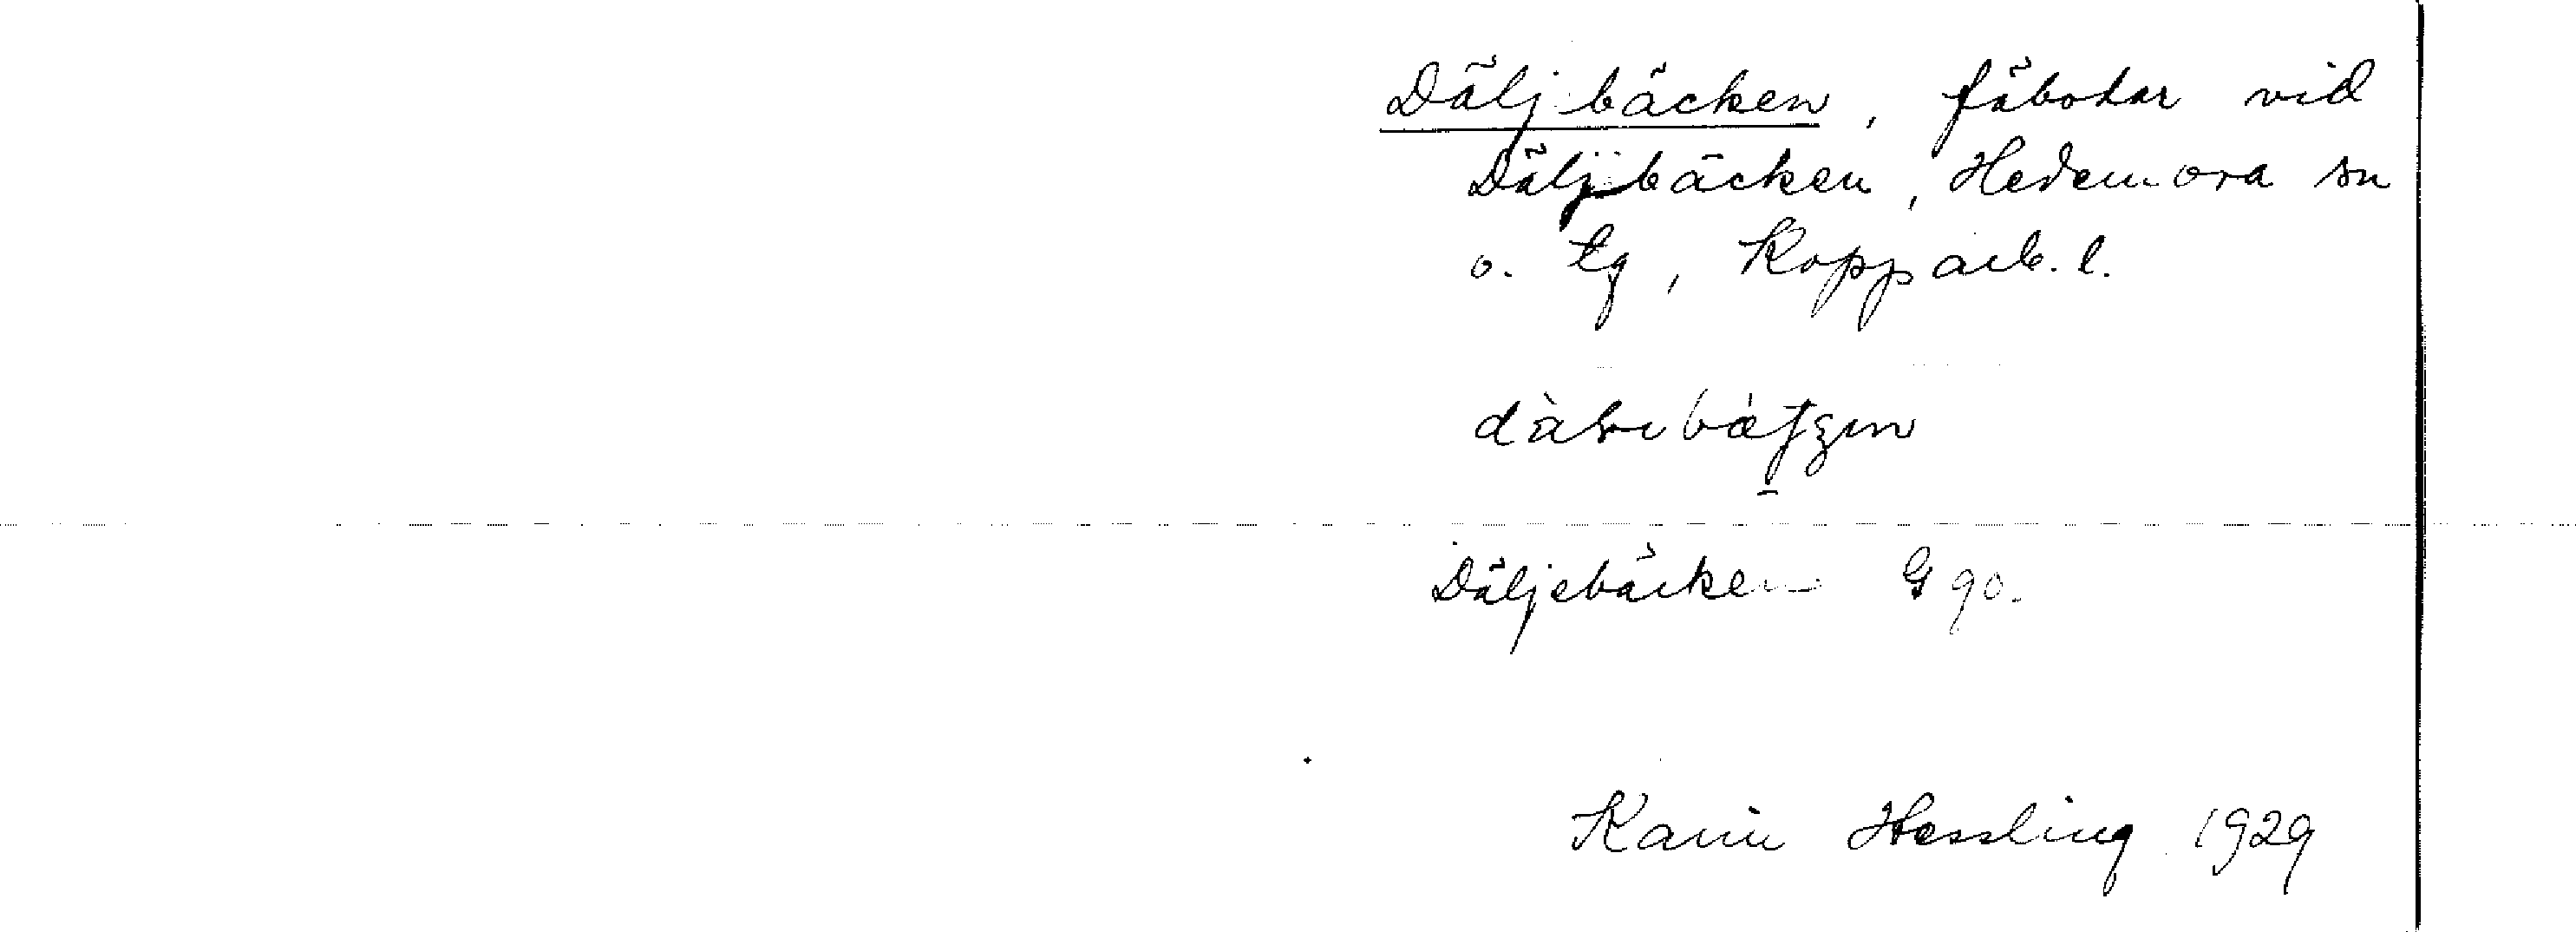 Däljbäcken, fäbodar vid
Däljbäcken, Hedemora sn
o. tg, Kopparb. l.
Däljebäcken G 90.
Karin Hessling 1929